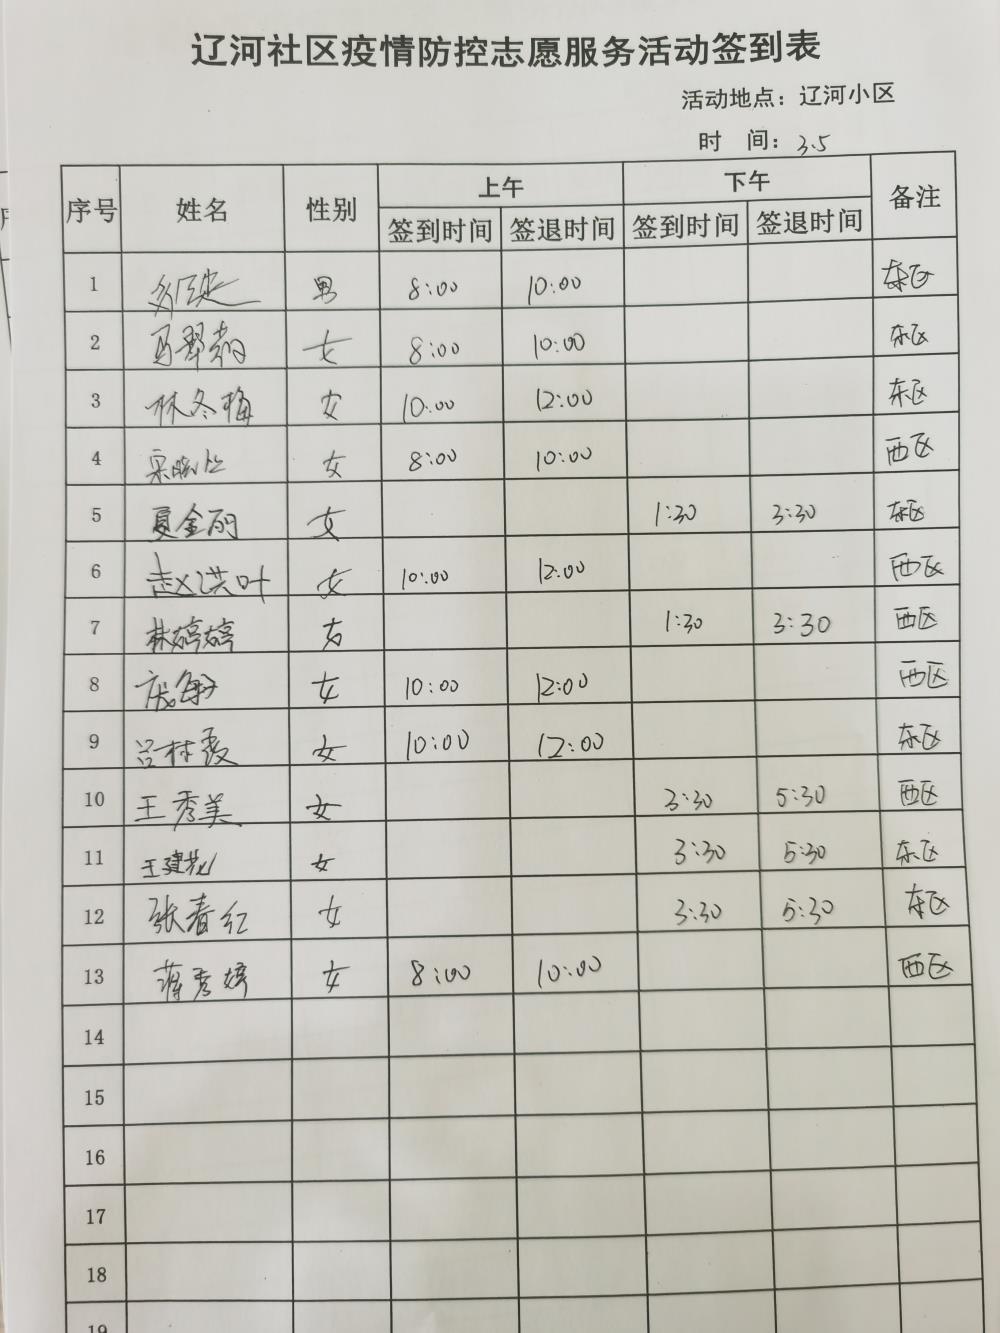 辽河社区疫情防控志愿服务活动签到表
活动地点：辽河小区
时 间：3.5
序号 姓名 性别 上午 下午 备注
签到时间 签退时间 签到时间 签退时间
1 男 8:00 10:00 东区
2 女 8:00 10:00 东区
3 林冬梅 女 10:00 12:00 东区
4 女 8:00 10:00 西区
5 夏金丽 女 1:30 3:30 东区
6 赵洪叶 女 10:00 12:00 西区
7 林婷婷 女 1:30 3:30 西区
8 女 10:00 12:00 西区
9 女 10:00 12:00 东区
10 王秀美 女 3:30 5:30 西区
11 王建花 女 3:30 5:30 东区
12 张春红 女 3:30 5:30 东区
13 蒋秀婷 女 8:00 10:00 西区
14
15
16
17
18
19